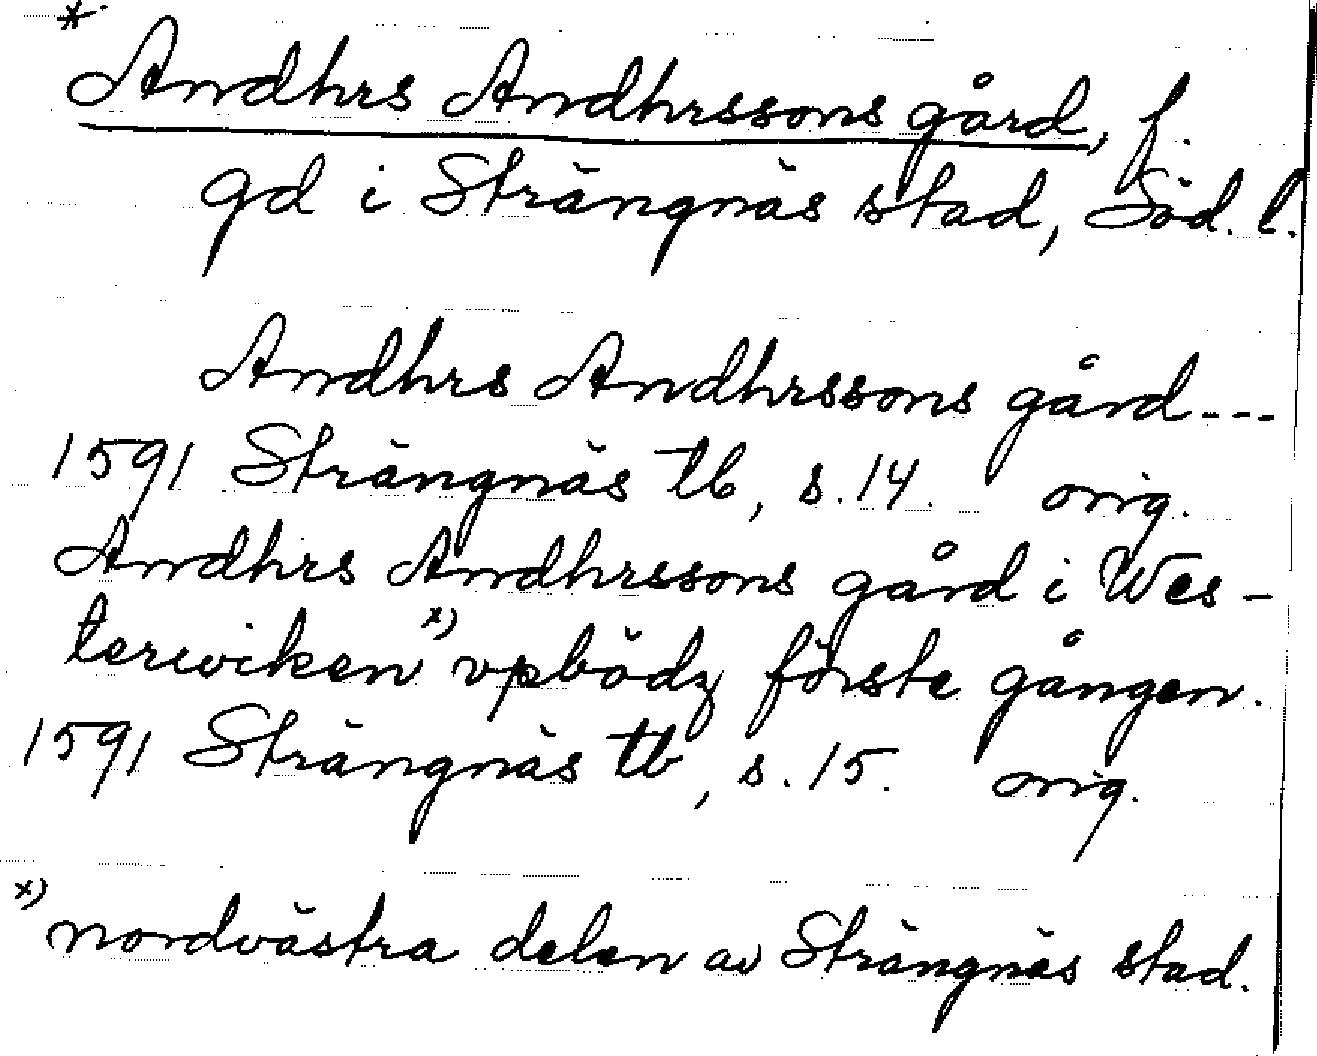 *
Andhrs Andhrssons gård, f.
gd i Strängnäs stad, Söd. l.
Andhrs Andhrssons gård---
1591 Strängnäs tb, s. 14. orig.
Andhrs Andhrssons gård i Wes-
terwiken x) vpbödz förste gången.
1591 Strängnäs tb, s. 15. orig.
x) nordvästra delen av Strängnäs stad.